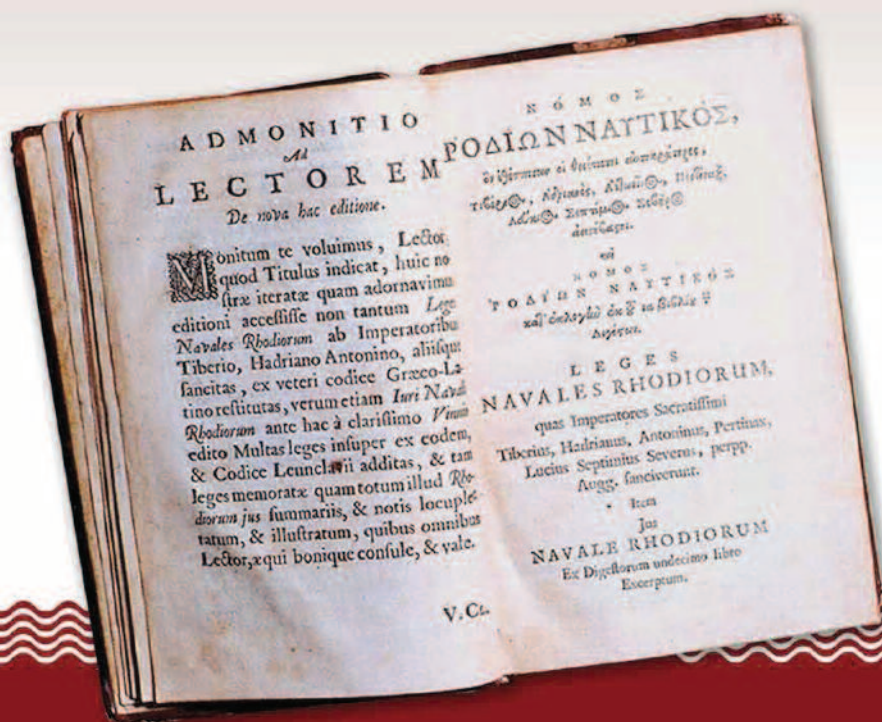 ADMONITIO
Ad
LECTOREM
De nova hac editione.
Monitum te voluimus, Lector
quod Titulus indicat, huic no
ſtræ iteratæ quam adornavimu
editioni acceſſiſſe non tantum Lege
Navales Rhodiorum ab Imperatoribu
Tiberio, Hadriano Antonino, aliiſqu
ſancitas, ex veteri codice Græco-La-
tino reſtitutas, verum etiam Iuri Navali
Rhodiorum ante hac à clariſſimo
edito Multas leges inſuper ex eodem,
& Codice Leunclavii additas, & tam
leges memoratæ quam totum illud Rho-
diorum jus ſummariis, & notis locuple-
tatum, & illuſtratum, quibus omnibus
Lector, æqui bonique conſule, & vale.
V.CL.
ΝΌΜΟΣ
ΡΟΔΙΩΝ ΝΑΥΤΙΚΟΣ,
ΝΟΜΟΣ
ΡΟΔΙΩΝ ΝΑΥΤΙΚΟΣ
LEGES
NAVALES RHODIORUM,
quas Imperatores Sacratiſſimi
Tiberius, Hadrianus, Antoninus, Pertinax,
Lucius Septimius Severus, perpp.
Augg. ſanciverunt.
Item
Jus
NAVALE RHODIORUM
Ex Digeſtorum undecimo libro
Excerptum.